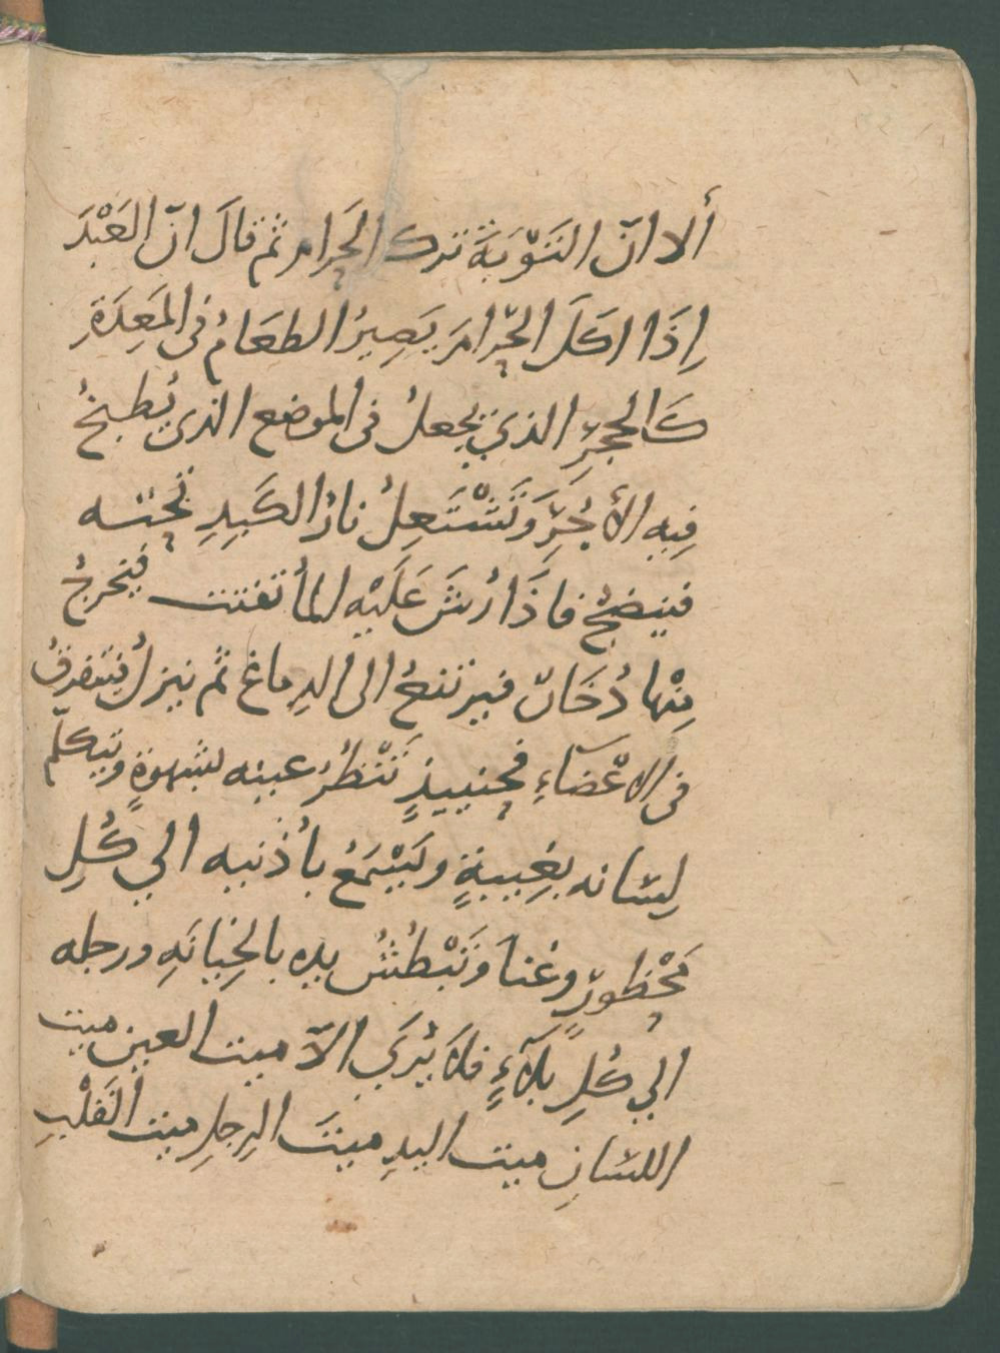 ألا انّ التَوّبَةَ ترك الحَرام ثم قالَ انّ العَبْدَ
اِذَا اكَلَ الحَرامَ يَصِيرُ الطعَامُ فى المَعِدَةِ
كَالحجرِ الذي يجعلُ فى الموضع الذى يُطبخُ
فِيه الأجُرَّ وَتَشْتَعِلُ نارُ الكَبِدِ تحته
فينضجُ فاذَا رُشَّ عَلَيْهِ الماُ تفتت فيخرجُ
مِنْها دُخَانّ فيرتفعُ الى الدِماغ ثم ينزلُ فيتفرقُ
فى الاعْضَاءِ فحينيذٍ تَنْظرُ عينه بشهوةٍ ويتكلّم
لِسَانه بغِيبةٍ ويَسْمَعُ باُذنيه الي كُلِ
مَحْظورٍ وغنا وَتَبْطُشُ يده بالخِيانَهِ ورجله
الي كُلِ بلآءٍ فلا يُرَي الاّ ميت العين ميت
اللسَانِ ميت اليدِ ميتَ الرِجلِ ميت القَلْبِ